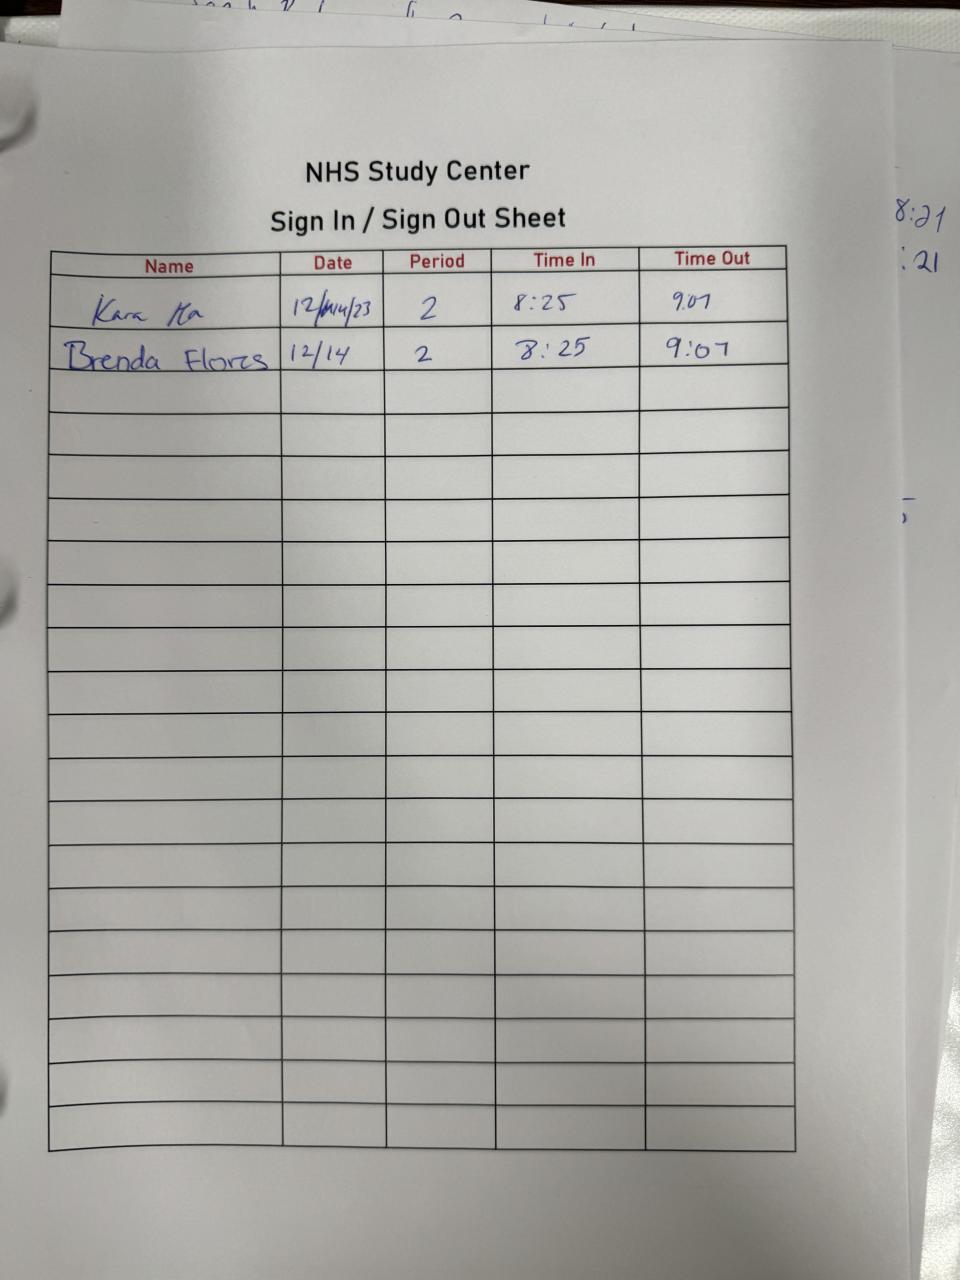 NHS Study Center
Sign In / Sign Out Sheet
Name Date Period Time In Time Out
Kara Ma 12/14/23 2 8:25 9:07
Brenda Flores 12/14 2 8:25 9:07
8:21
:21